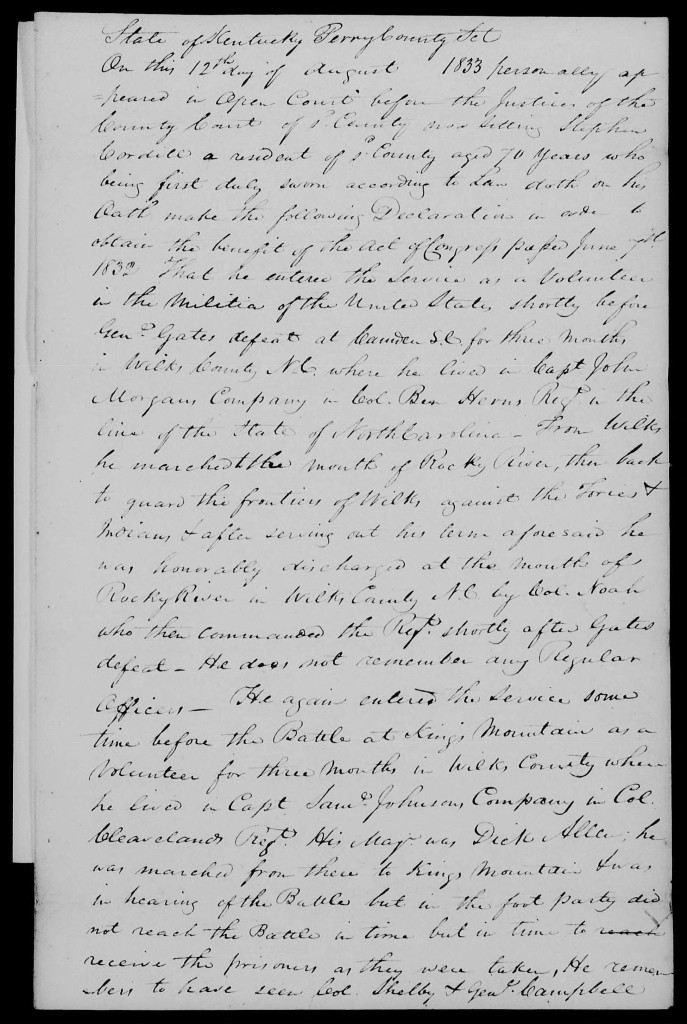 State of Kentucky Perry County Sct
On this 12th day of August 1833 personally ap
=peared in Open Court before the Justices of the
County Court of sd County now sitting Stephen
Cordill a resident of sd County aged 70 Years who
being first duly sworn according to Law doth on his
Oath make the following Declaration in order to
obtain the benefit of the Act of Congress passed June 7th
1832 That he entered the Service as a Volunteer
in the Militia of the United States shortly before
Genl Gates defeat at Camden S.C. for three Months
in Wilks County N.C. where he lived in Capt John
Morgans Company in Col. Ben Herns Regt in the
line of the State of North Carolina – From Wilks
he marched to the mouth of Rocky River, then back
to guard the frontiers of Wilks against the Tories &
Indians & after serving out his term aforesaid he
was honorably discharged at the mouth of
Rocky River in Wilks County N.C. by Col. Noah
who then commanded the Regt. shortly after Gates
defeat – He does not remember any Regular
Officers – He again entered the service some
time before the Battle at Kings Mountain as a
Volunteer for three Months in Wilks County where
he lived in Capt Saml Johnsons Company in Col.
Cleavelands Regt. His Majr was Dick Allen; he
was marched from there to Kings Mountain & was
in hearing of the Battle but in the foot party did
not reach the Battle in time but in time to reach
receive the prisoners as they were taken, He remem
=bers to have seen Col. Shelby & Genl. Campbell